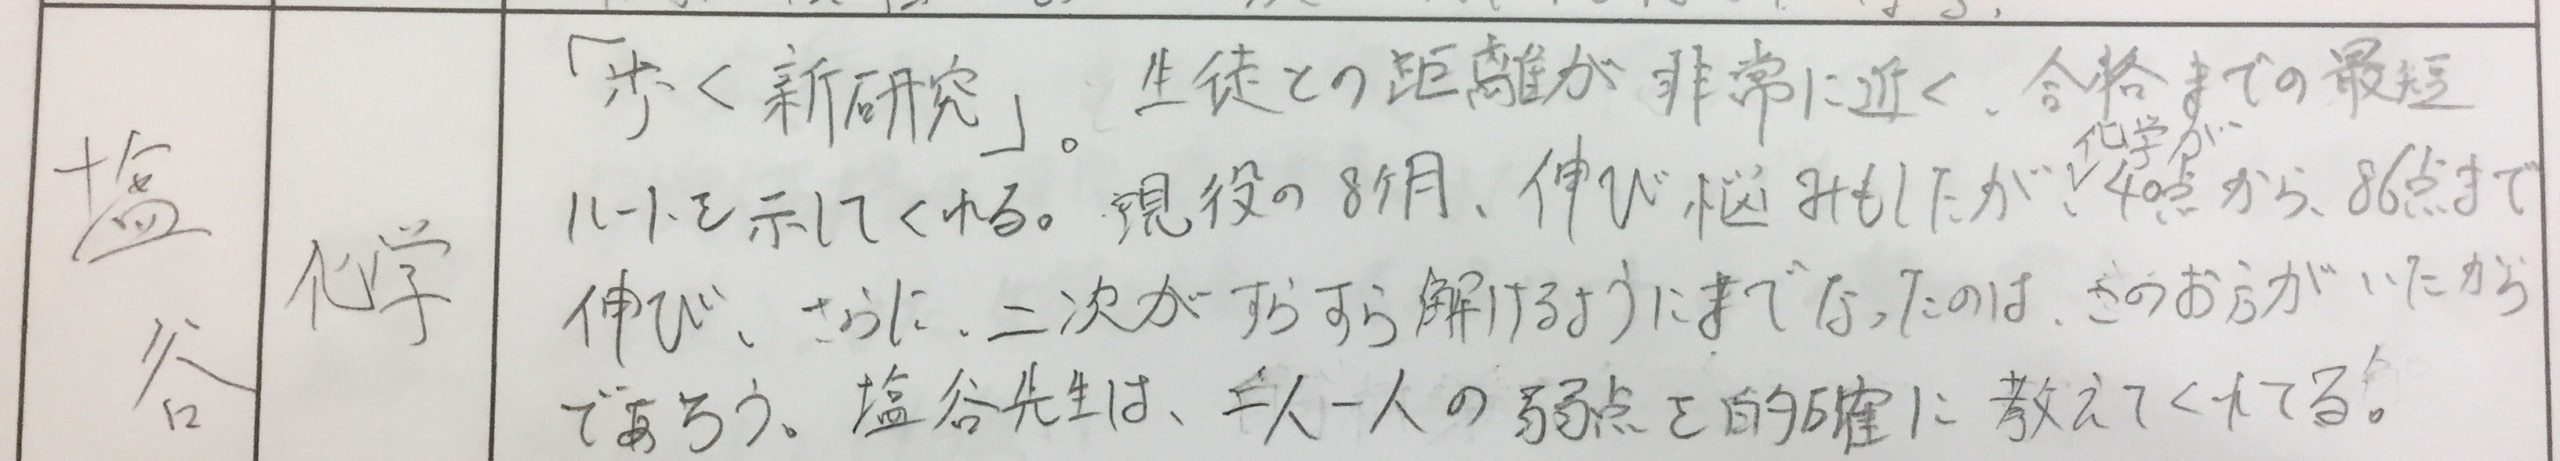 塩谷
化学
「歩く新研究」。生徒との距離が非常に近く、合格までの最短
ルートを示してくれる。現役の8ヶ月、伸び悩みもしたが、化学が40点から、86点まで
伸び、さらに、二次がすらすら解けるようにまでなったのは、きのおらがいたから
であろう。塩谷先生は、一人一人の弱点を的確に教えてくれてる。